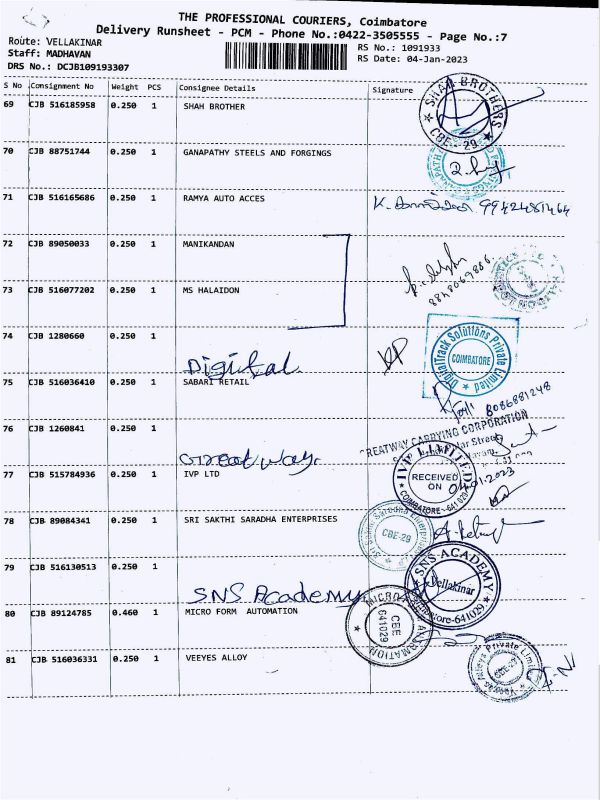 THE PROFESSIONAL COURIERS, Coimbatore
Delivery Runsheet - PCM - Phone No.:0422-3505555 - Page No.:7
Route: VELLAKINAR
Staff: MADHAVAN
DRS No.: DCJB109193307
RS No.: 1091933
RS Date: 04-Jan-2023
S No Consignment No Weight PCS Consignee Details Signature
69 CJB 516185958 0.250 1 SHAH BROTHER
SHAH BROTHERS CBE - 29
70 CJB 88751744 0.250 1 GANAPATHY STEELS AND FORGINGS
71 CJB 516165686 0.250 1 RAMYA AUTO ACCES
72 CJB 89050033 0.250 1 MANIKANDAN
73 CJB 516077202 0.250 1 MS HALAIDON
74 CJB 1280660 0.250 1
Digital
DigitalTrack Solutions Private Limited COIMBATORE
75 CJB 516036410 0.250 1 SABARI RETAIL
8086881248
76 CJB 1260841 0.250 1
Great way
REATWAY CARRYING CORPORATION
77 CJB 515784936 0.250 1 IVP LTD
IVP LIMITED RECEIVED ON COIMBATORE - 641 029
04/01/2023
78 CJB 89084341 0.250 1 SRI SAKTHI SARADHA ENTERPRISES
CBE-29
79 CJB 516130513 0.250 1
SNS Academy
SNS ACADEMY Vellakinar Coimbatore-641029
80 CJB 89124785 0.460 1 MICRO FORM AUTOMATION
CBE 641029
81 CJB 516036331 0.250 1 VEEYES ALLOY